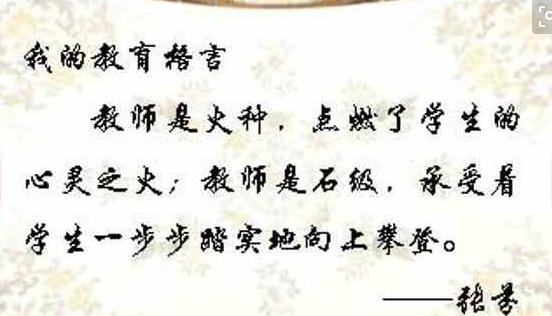 我的教育格言
教师是火种，点燃了学生的
心灵之火；教师是石级，承受着
学生一步步踏实地向上攀登。
——张